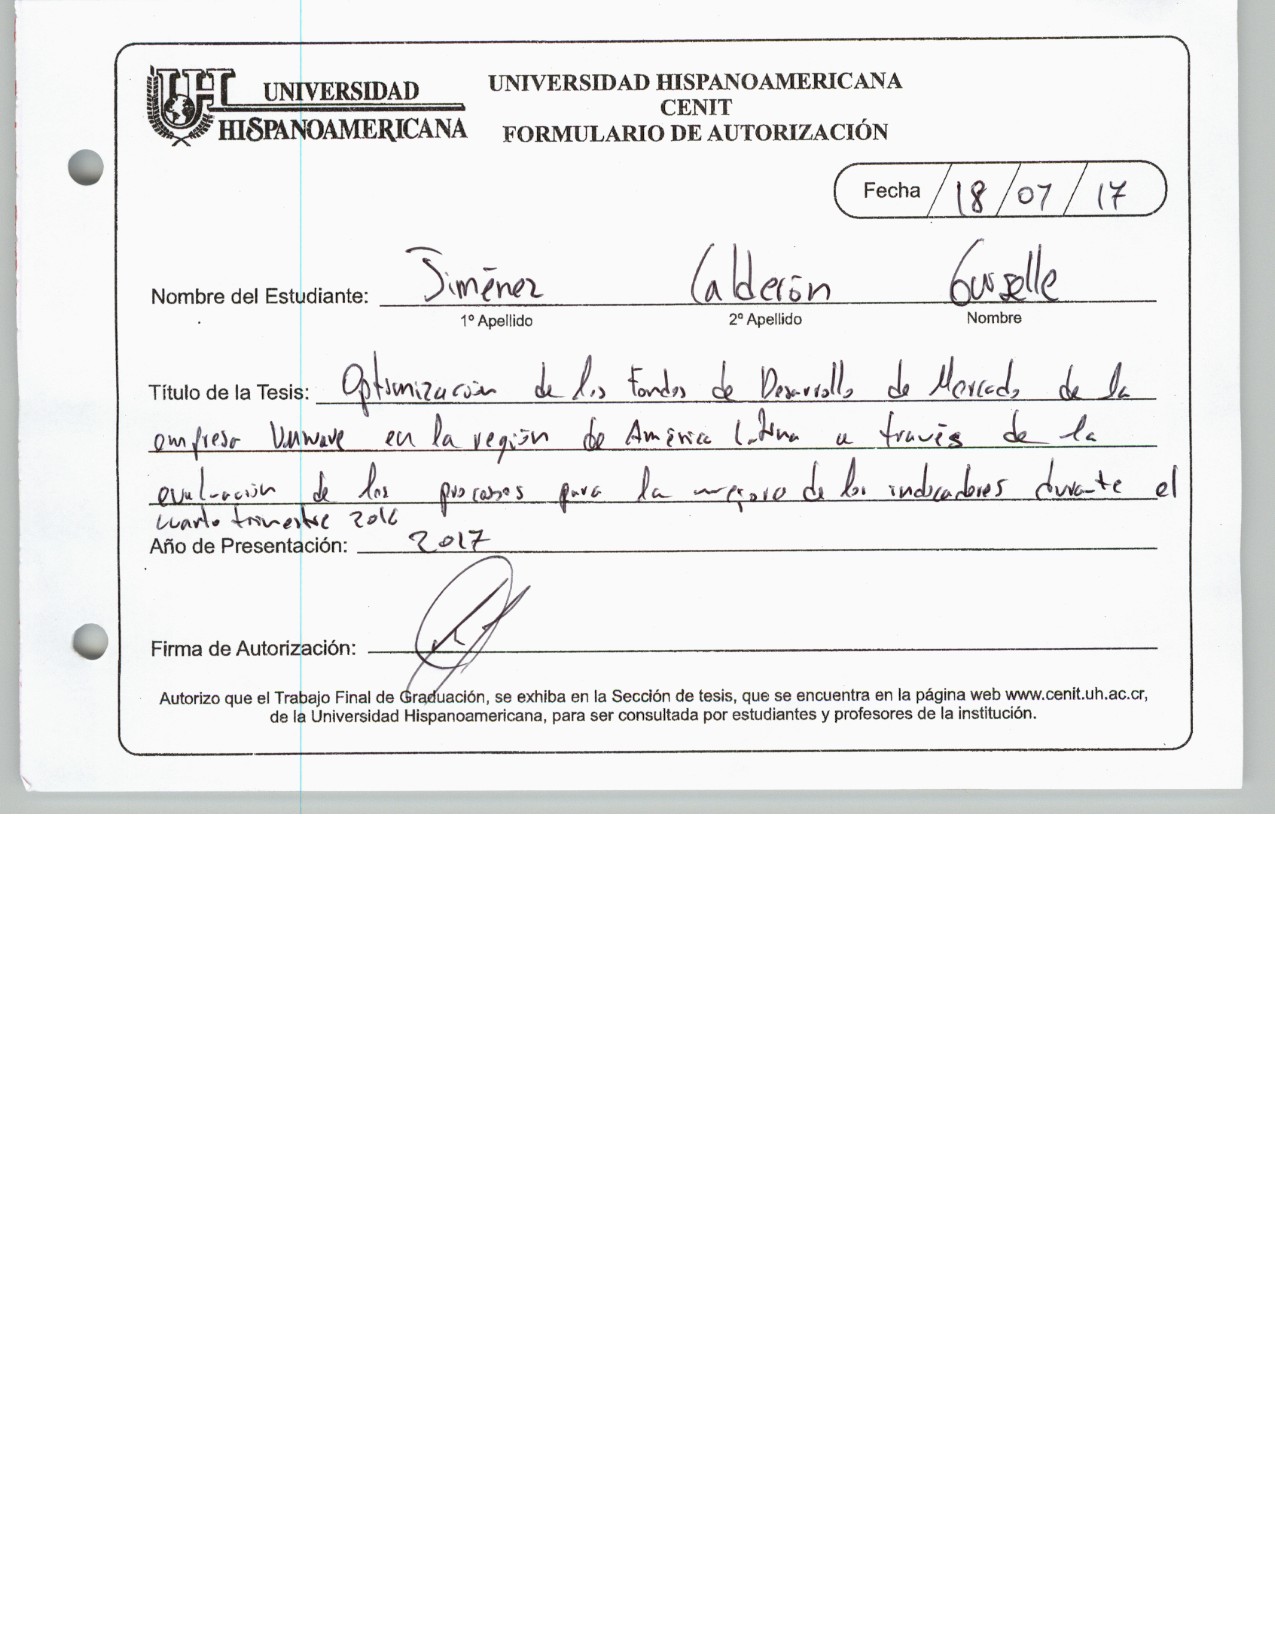 UNIVERSIDAD
HISPANOAMERICANA
UNIVERSIDAD HISPANOAMERICANA
CENIT
FORMULARIO DE AUTORIZACIÓN
Fecha / 18 / 07 / 17
Nombre del Estudiante: Jiménez Calderón
1º Apellido 2º Apellido Nombre
Título de la Tesis: Optimización de los Fondos de Desarrollo de Mercado de la
empresa en la región de América Latina a través de la
evaluación de los procesos para la mejora de los indicadores durante el
cuarto trimestre 2016
Año de Presentación: 2017
Firma de Autorización:
Autorizo que el Trabajo Final de Graduación, se exhiba en la Sección de tesis, que se encuentra en la página web www.cenit.uh.ac.cr,
de la Universidad Hispanoamericana, para ser consultada por estudiantes y profesores de la institución.